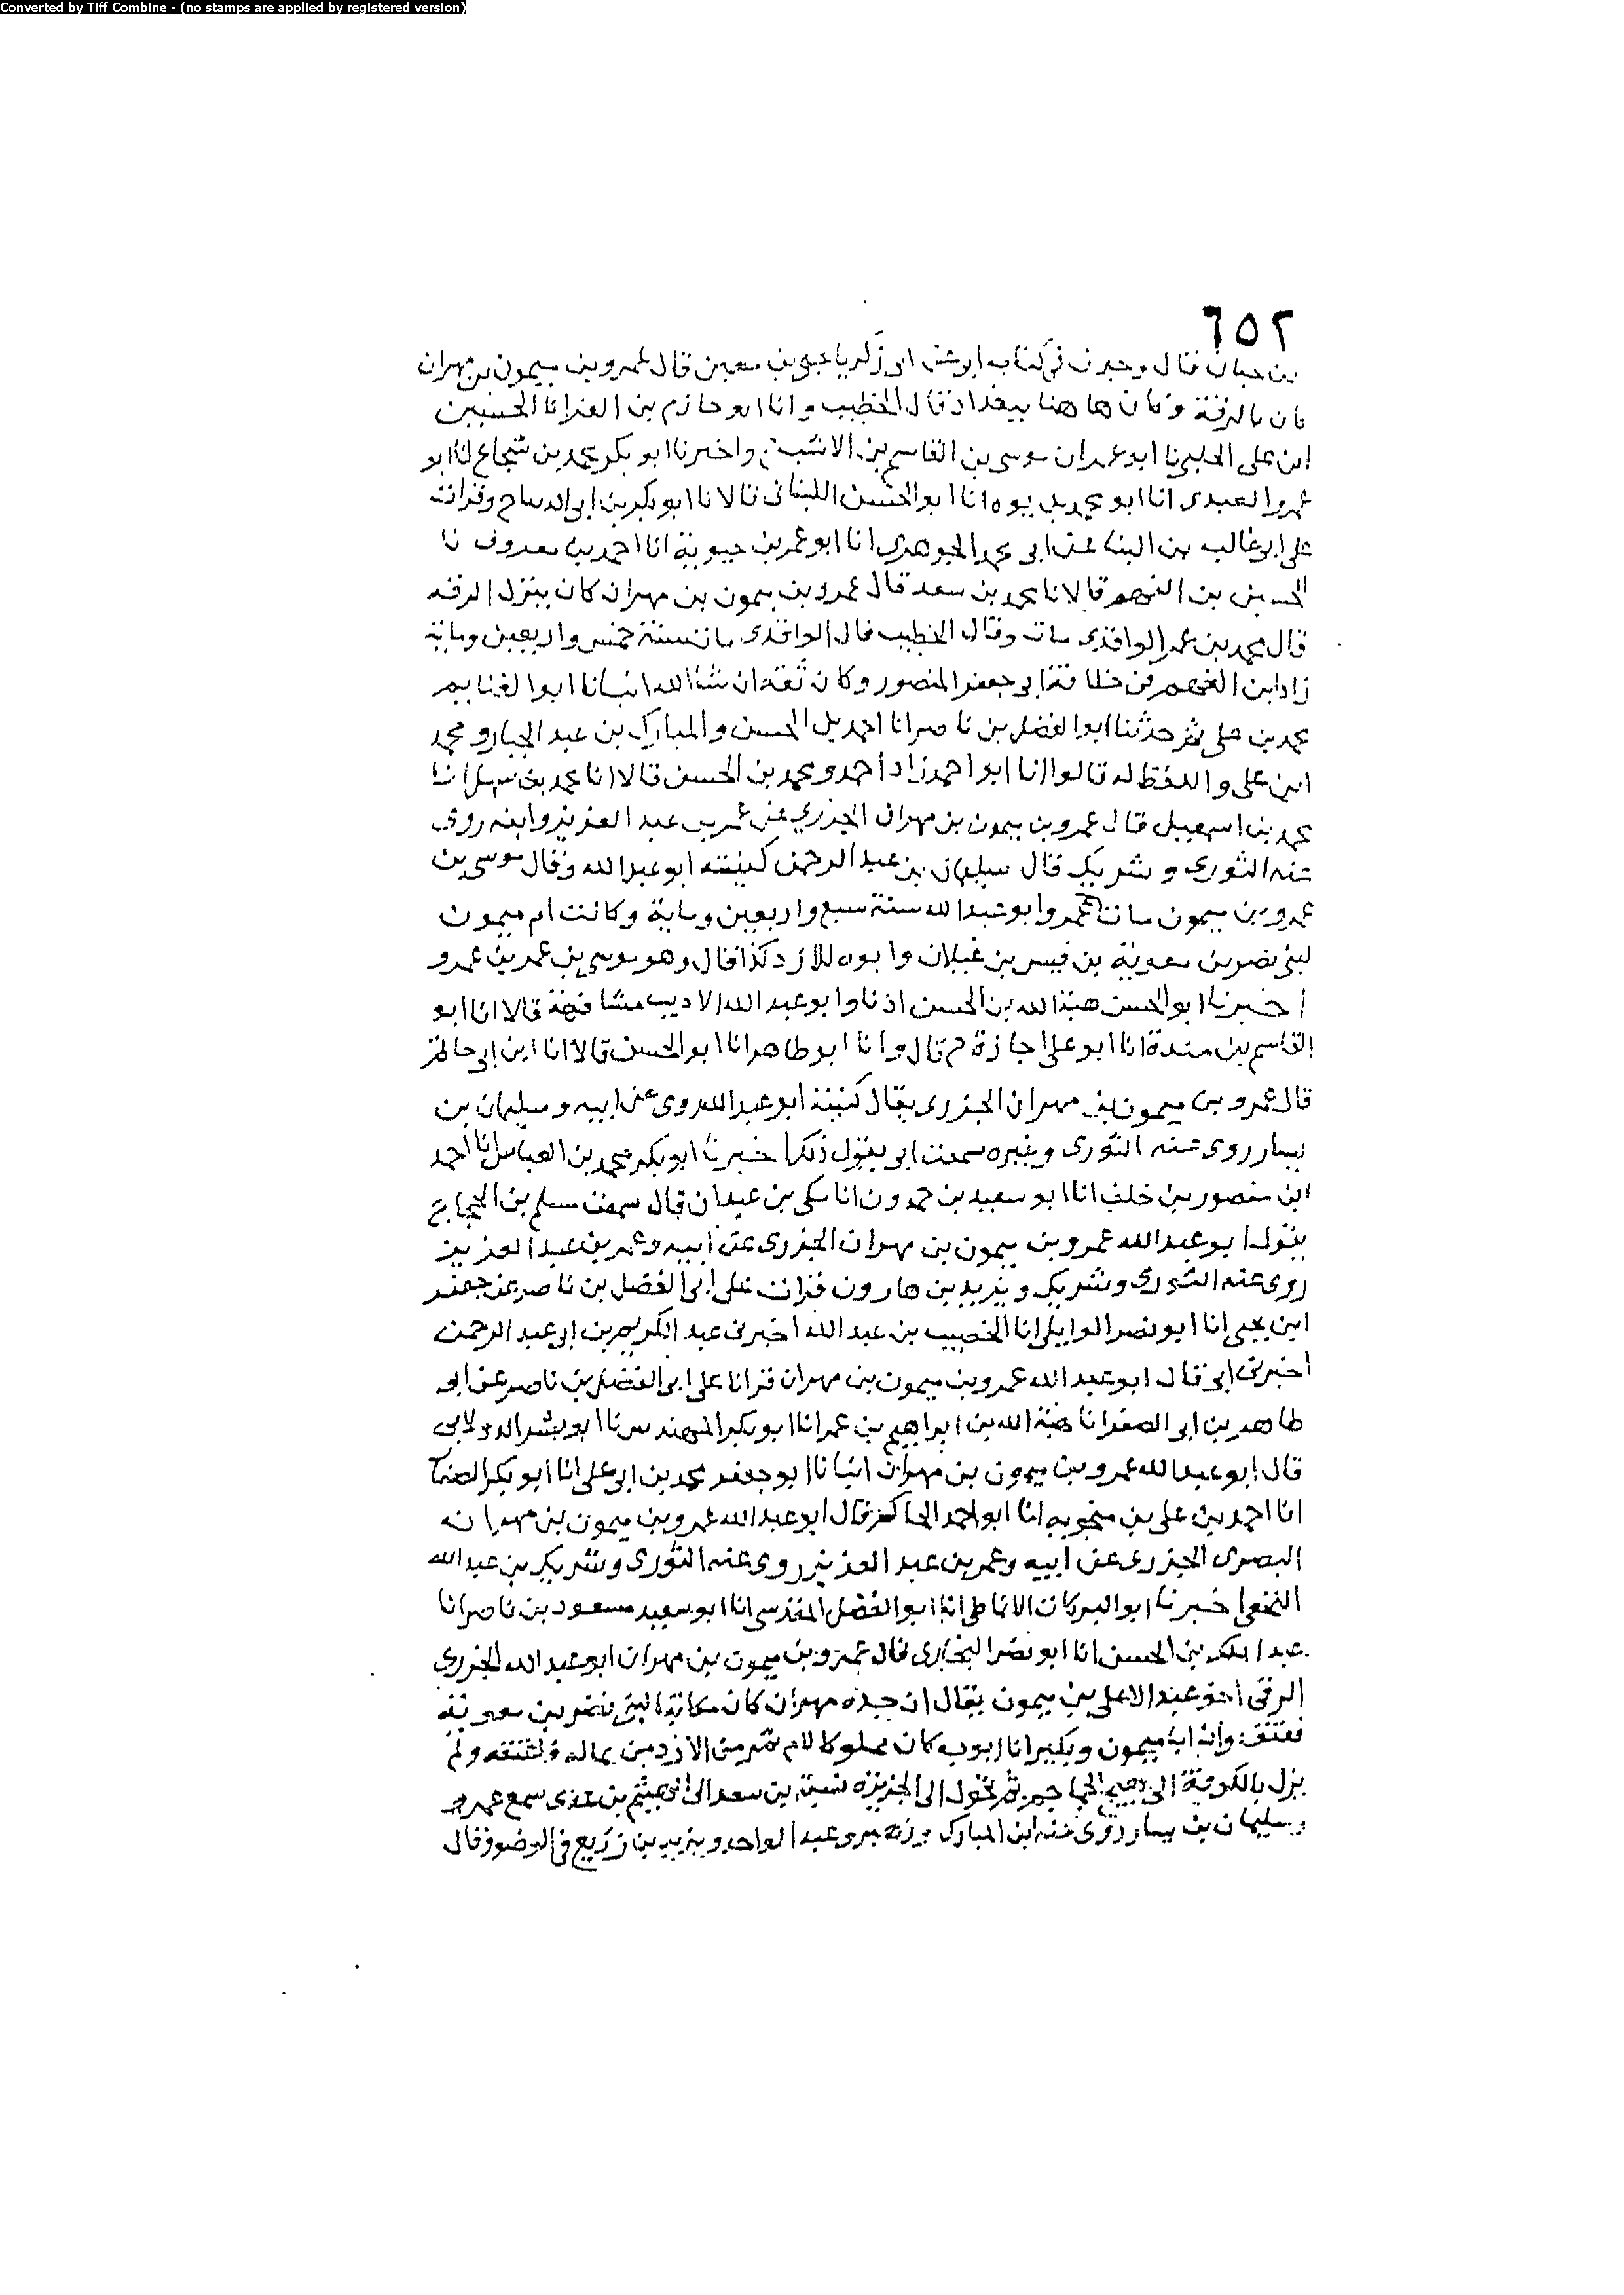 Converted by Tiff Combine - (no stamps are applied by registered version)
٦٥٢
بن حبان قال وجدت في كتاب ابى عن ابى زكريا يحيى بن معين قال عمرو بن ميمون بن مهران
كان بالرقة وكان ها هنا ببغداد قال الخطيب وانا ابو حازم بن الفرا انا الحسين
ابن على الحلبى نا ابو عمران موسى بن القاسم بن الاشيب واخبرنا ابو بكر محمد بن شجاع انا ابو
عمرو العبدى انا ابو محمد بن يوه انا ابو الحسن اللبنانى قالا نا ابو بكر بن ابى الدنيا ح وقرات
على ابى غالب بن البنا عن ابى محمد الجوهرى انا ابو عمر بن حيوية انا احمد بن معروف نا
الحسين بن الفهم قالا نا محمد بن سعد قال عمرو بن ميمون بن مهران كان ينزل الرقه
قال محمد بن عمر الواقدى مات وقال الخطيب قال الواقدى مات سنة خمس واربعين وماية
زاد ابن الفهم فى خلافة ابى جعفر المنصور وكان ثقة ان شا الله انبانا ابو الغنايم
محمد بن على ثم حدثنا ابو الفضل بن ناصر انا احمد بن الحسن والمبارك بن عبد الجبار ومحمد
ابن على واللفظ له قالوا انا ابو احمد زاد احمد ومحمد بن الحسن قالا انا محمد بن سهل انا
محمد بن اسمعيل قال عمرو بن ميمون بن مهران الجزري عن عمر بن عبد العزيز وابيه روى
عنه الثورى و شريك قال سليمان بن عبد الرحمن كنيته ابو عبد الله وقال موسى بن
عمرو بن ميمون مات عمرو ابو عبد الله سنة سبع واربعين وماية وكانت ام ميمون
لبنى نصر بن معوية بن قيس بن غيلان وابوه للازد كذا قال وهو موسى بن عمر بن عمرو
اخبرنا ابو الحسن هبة الله بن الحسن اذنا وابو عبد الله الاديب مشافهة قالا انا ابو
القاسم بن مندة انا ابو على اجازة ح قال وانا ابو طاهر انا ابو الحسن قالا انا ابن ابى حاتم
قال عمرو بن ميمون بن مهران الجزرى يقال كنيته ابو عبد الله روى عن ابيه وسليمان بن
يسار روى عنه الثورى وغيره سمعت ابى يقول ذلك اخبرنا ابو بكر محمد بن العباس انا احمد
ابن منصور بن خلف انا ابو سعيد بن حمدون انا مكى بن عبدان قال سمعت مسلم بن الحجاج
يقول ابو عبد الله عمرو بن ميمون بن مهران الجزرى عن ابيه وعمر بن عبد العزيز
روى عنه الثورى وشريك ويزيد بن هارون قرات على ابى الفضل بن ناصر عن جعفر
ابن يحيى انا ابو نصر الوايلى انا الخصيب بن عبد الله اخبرنى عبد الكريم بن ابى عبد الرحمن
اخبرنى ابى قال ابو عبد الله عمرو بن ميمون بن مهران قرانا على ابى الفضل بن ناصر عن ابى
طاهر بن ابى الصقر انا هبة الله بن ابراهيم بن عمر انا ابو بكر المهندس نا ابو بشر الدولابى
قال ابو عبد الله عمرو بن ميمون بن مهران انبانا ابو جعفر محمد بن ابى على انا ابو بكر الصفار
انا احمد بن على بن منجويه انا ابو احمد الحاكم قال ابو عبد الله عمرو بن ميمون بن مهران
البصرى الجزرى عن ابيه وعمر بن عبد العزيز روى عنه الثورى وشريك بن عبد الله
النخعى اخبرنا ابو البركات الانماطى انا ابو الفضل المقدسى انا ابو سعيد مسعود بن ناصر انا
عبد الملك بن الحسن انا ابو نصر البخارى قال عمرو بن ميمون بن مهران ابو عبد الله الجزري
الرقى اخو عبد الاعلى بن ميمون يقال ان جده مهران كان مكاتبا لبنى نصر بن معوية
فعتق وان ابنه ميمون كان مملوكا لام نمر من الازد من بماله فاعتقته ولم
يزل بالكوفة الى الجماجم ثم تحول الى الجزيرة نسبه بن سعد الى الهيثم بن عدى سمع عمرو
وسليمان بن يسار روى عنه ابن المبارك وزهير وعبد الواحد ويزيد بن زريع فى الوضو وقال